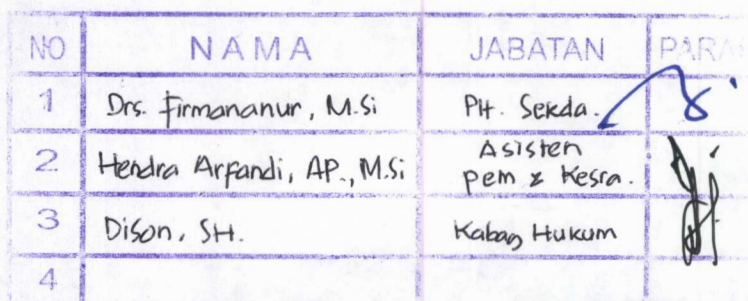 NO NAMA JABATAN PARA
1 Drs. Firmananur, M.Si Plt. Sekda.
2 Hendra Arfandi, AP., M.Si Asisten
pem & Kesra.
3 Dison, SH. Kabag Hukum
4